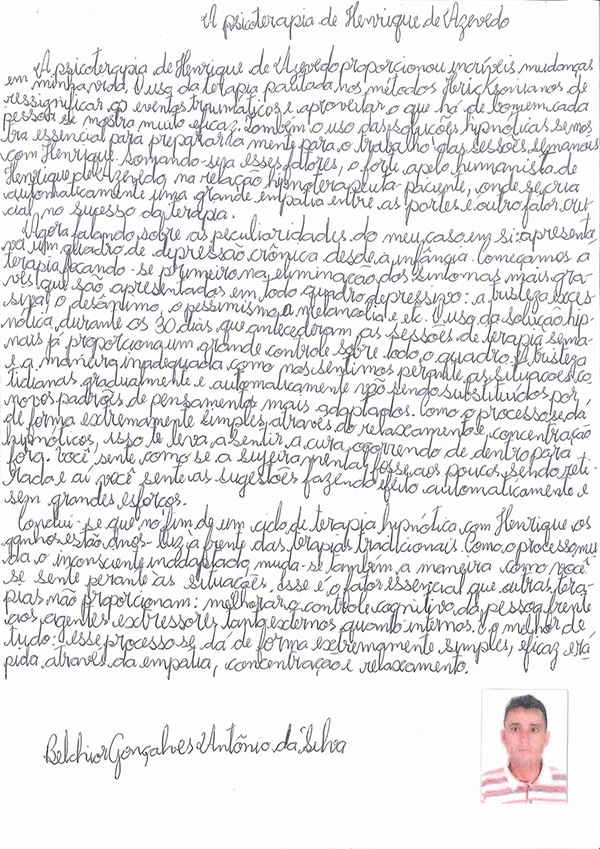 A psicoterapia de Henrique de Azevedo
A psicoterapia de Henrique de Azevedo proporcionou incríveis mudanças
em minha vida. O uso da terapia pautada nos métodos Ericksonianos de
ressignificar os eventos traumáticos e aproveitar o que há de bom em cada
pessoa se mostra muito eficaz. Também o uso das soluções hipnóticas se mos
tra essencial para preparar da mente para o trabalho das sessões semanais
com Henrique. Somando-se a esses fatores, o forte apelo humanista de
Henrique de Azevedo na relação hipnoterapeuta-paciente, onde se cria
automaticamente uma grande empatia entre as partes é outro fator cru
cial no sucesso da terapia.
Agora falando sobre as peculiaridades do meu caso em si: apresenta
va um quadro de depressão crônica desde a infância. Começamos a
terapia focando-se primeiro na eliminação dos sintomas mais gra-
ves que são apresentados em todo quadro depressivo: a tristeza exces-
siva, o desânimo, o pessimismo, a melancolia e etc. O uso da solução hip-
nótica, durante os 30 dias que antecederam as sessões de terapia sema-
nais já proporciona um grande controle sobre todo o quadro. A tristeza
e a maneira inadequada como nos sentimos perante as situações co
tidianas gradualmente e automaticamente vão sendo substituídos por
novos padrões de pensamentos mais adaptados. Como o processo se dá
de forma extremamente simples, através do relaxamento e concentração
hipnóticos, isso te leva a sentir a cura ocorrendo de dentro para
fora. Você sente como se a sujeira mental fosse aos poucos sendo reti-
rada e aí você sente as sugestões fazendo efeito automaticamente e
sem grandes esforços.
Conclui-se que no fim de um ciclo de terapia hipnótica com Henrique os
ganhos estão anos-luz à frente das terapias tradicionais. Como o processo mu
da o inconsciente inadaptado, muda-se também a maneira como você
se sente perante as situações, esse é o fator essencial que outras tera-
pias não proporcionam: melhorar o controle cognitivo da pessoa frente
aos agentes extressores tanto externos quanto internos. E o melhor de
tudo: esse processo se dá de forma extremamente simples, eficaz e rá
pida através da empatia, concentração e relaxamento.
Belchior Gonçalves Antônio da Silva